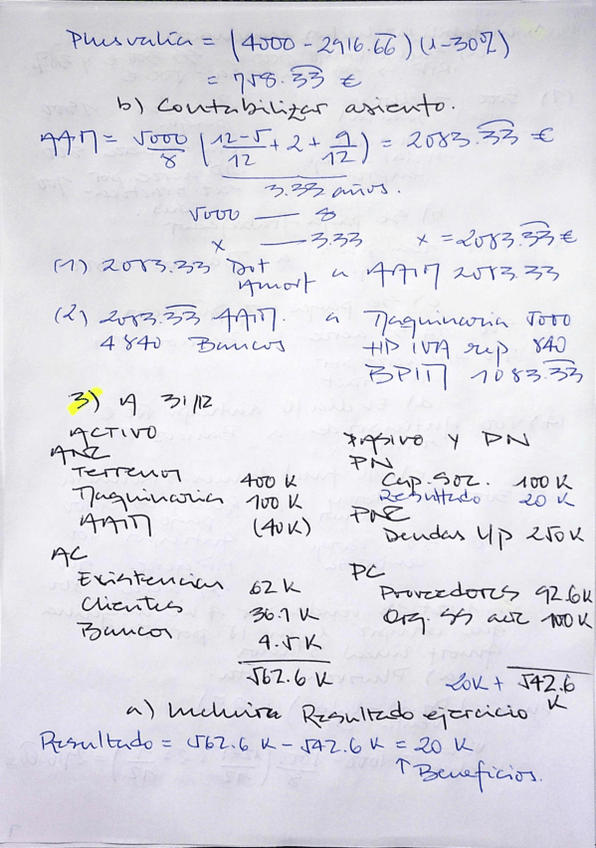 Plusvalía = (4000 - 2916.66) (1-30%)
= 758.33 €
b) Contabilizar asiento.
AAM = 5000/8 (12-5/12 + 2 + 9/12) = 2083.33 €
3.33 años.
5000 — 8
x — 3.33 x = 2083.33 €
(1) 2083.33 Dot Amort a AAM 2083.33
(2) 2083.33 AAM. a Maquinaria 5000
4840 Bancos HP IVA rep. 840
BPIM 1083.33
3) A 31/12
ACTIVO PASIVO Y PN
ANC PN
Terrenos 400 K Cap. Soc. 100 K
Maquinaria 100 K Resultado 20 K
AAM (40K) PNC
Deudas l/p 250K
AC PC
Existencias 62 K Proveedores 92.6K
Clientes 36.1 K Org. SS acr 100K
Bancos 4.5 K
562.6 K 20K + 542.6 K
a) Incluira Resultado ejercicio
Resultado = 562.6 K - 542.6 K = 20 K
↑ Beneficios.